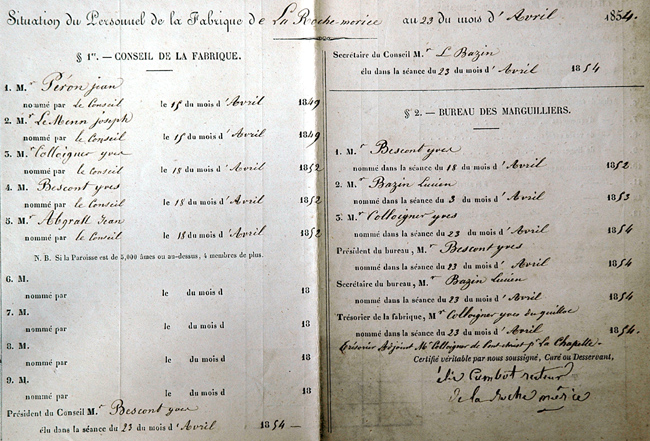 Situation du Personnel de la Fabrique de La Roche-morice au 23 du mois d'Avril 1854.
§ 1er. — CONSEIL DE LA FABRIQUE.
1. Mr Péron jean
nommé par le Conseil le 15 du mois d'Avril 1849
2. Mr LeMenn joseph
nommé par le Conseil le 15 du mois d'Avril 1849
3. Mr Colloigner yves
nommé par le Conseil le 18 du mois d'Avril 1852
4. Mr Bescont yves
nommé par le Conseil le 18 du mois d'Avril 1852
5. Mr Abgrall Jean
nommé par le Conseil le 18 du mois d'Avril 1852
N. B. Si la Paroisse est de 5,000 âmes ou au-dessus, 4 membres de plus.
6. M.
nommé par le du mois d 18
7. M.
nommé par le du mois d 18
8. M.
nommé par le du mois d 18
9. M.
nommé par le du mois d 18
Président du Conseil Mr Bescont yves
élu dans la séance du 23 du mois d'Avril 1854 —
Secrétaire du Conseil Mr L Bazin
élu dans la séance du 23 du mois d'Avril 1854
§ 2. — BUREAU DES MARGUILLIERS.
1. Mr Bescont yves
nommé dans la séance du 18 du mois d'Avril 1852
2. Mr Bazin Lucien
nommé dans la séance du 3 du mois d'Avril 1853
3. Mr Colloigner yves
nommé dans la séance du 23 du mois d'Avril 1854
Président du bureau, Mr Bescont yves
nommé dans la séance du 23 du mois d'Avril 1854
Secrétaire du bureau, Mr Bazin Lucien
nommé dans la séance du 23 du mois d'Avril 1854
Trésorier de la fabrique, Mr Colloigner yves du quillec
nommé dans la séance du 23 du mois d'Avril 1854.
trésorier Adjoint Mr Colloigner de Pont-christ pr La Chapelle.
Certifié véritable par nous soussigné, Curé ou Desservant,
Cumbot recteur
de la roche morice